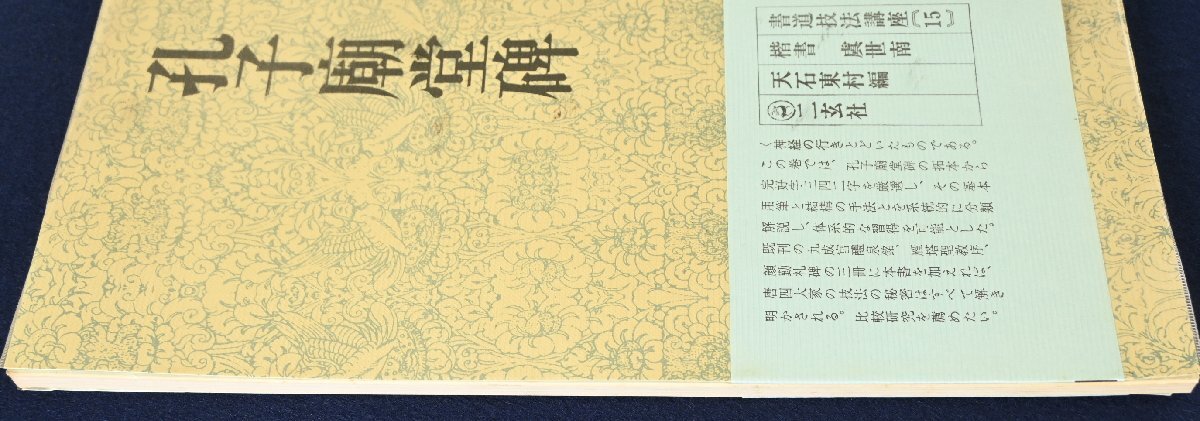 孔子廟堂碑
書道技法講座〔15〕
楷書 虞世南
天石東村編
二玄社
く神経の行きとどいたものである。
この巻では、孔子廟堂碑の拓本から
完好字三四二字を厳選し、その基本
用筆と結構の手法とを系統的に分類
解説し、体系的な習得を可能とした。
既刊の九成宮醴泉銘、雁塔聖教序、
顔勤礼碑の三冊に本書を加えれば、
唐四大家の技法の秘密はすべて解き
明かされる。比較研究を薦めたい。